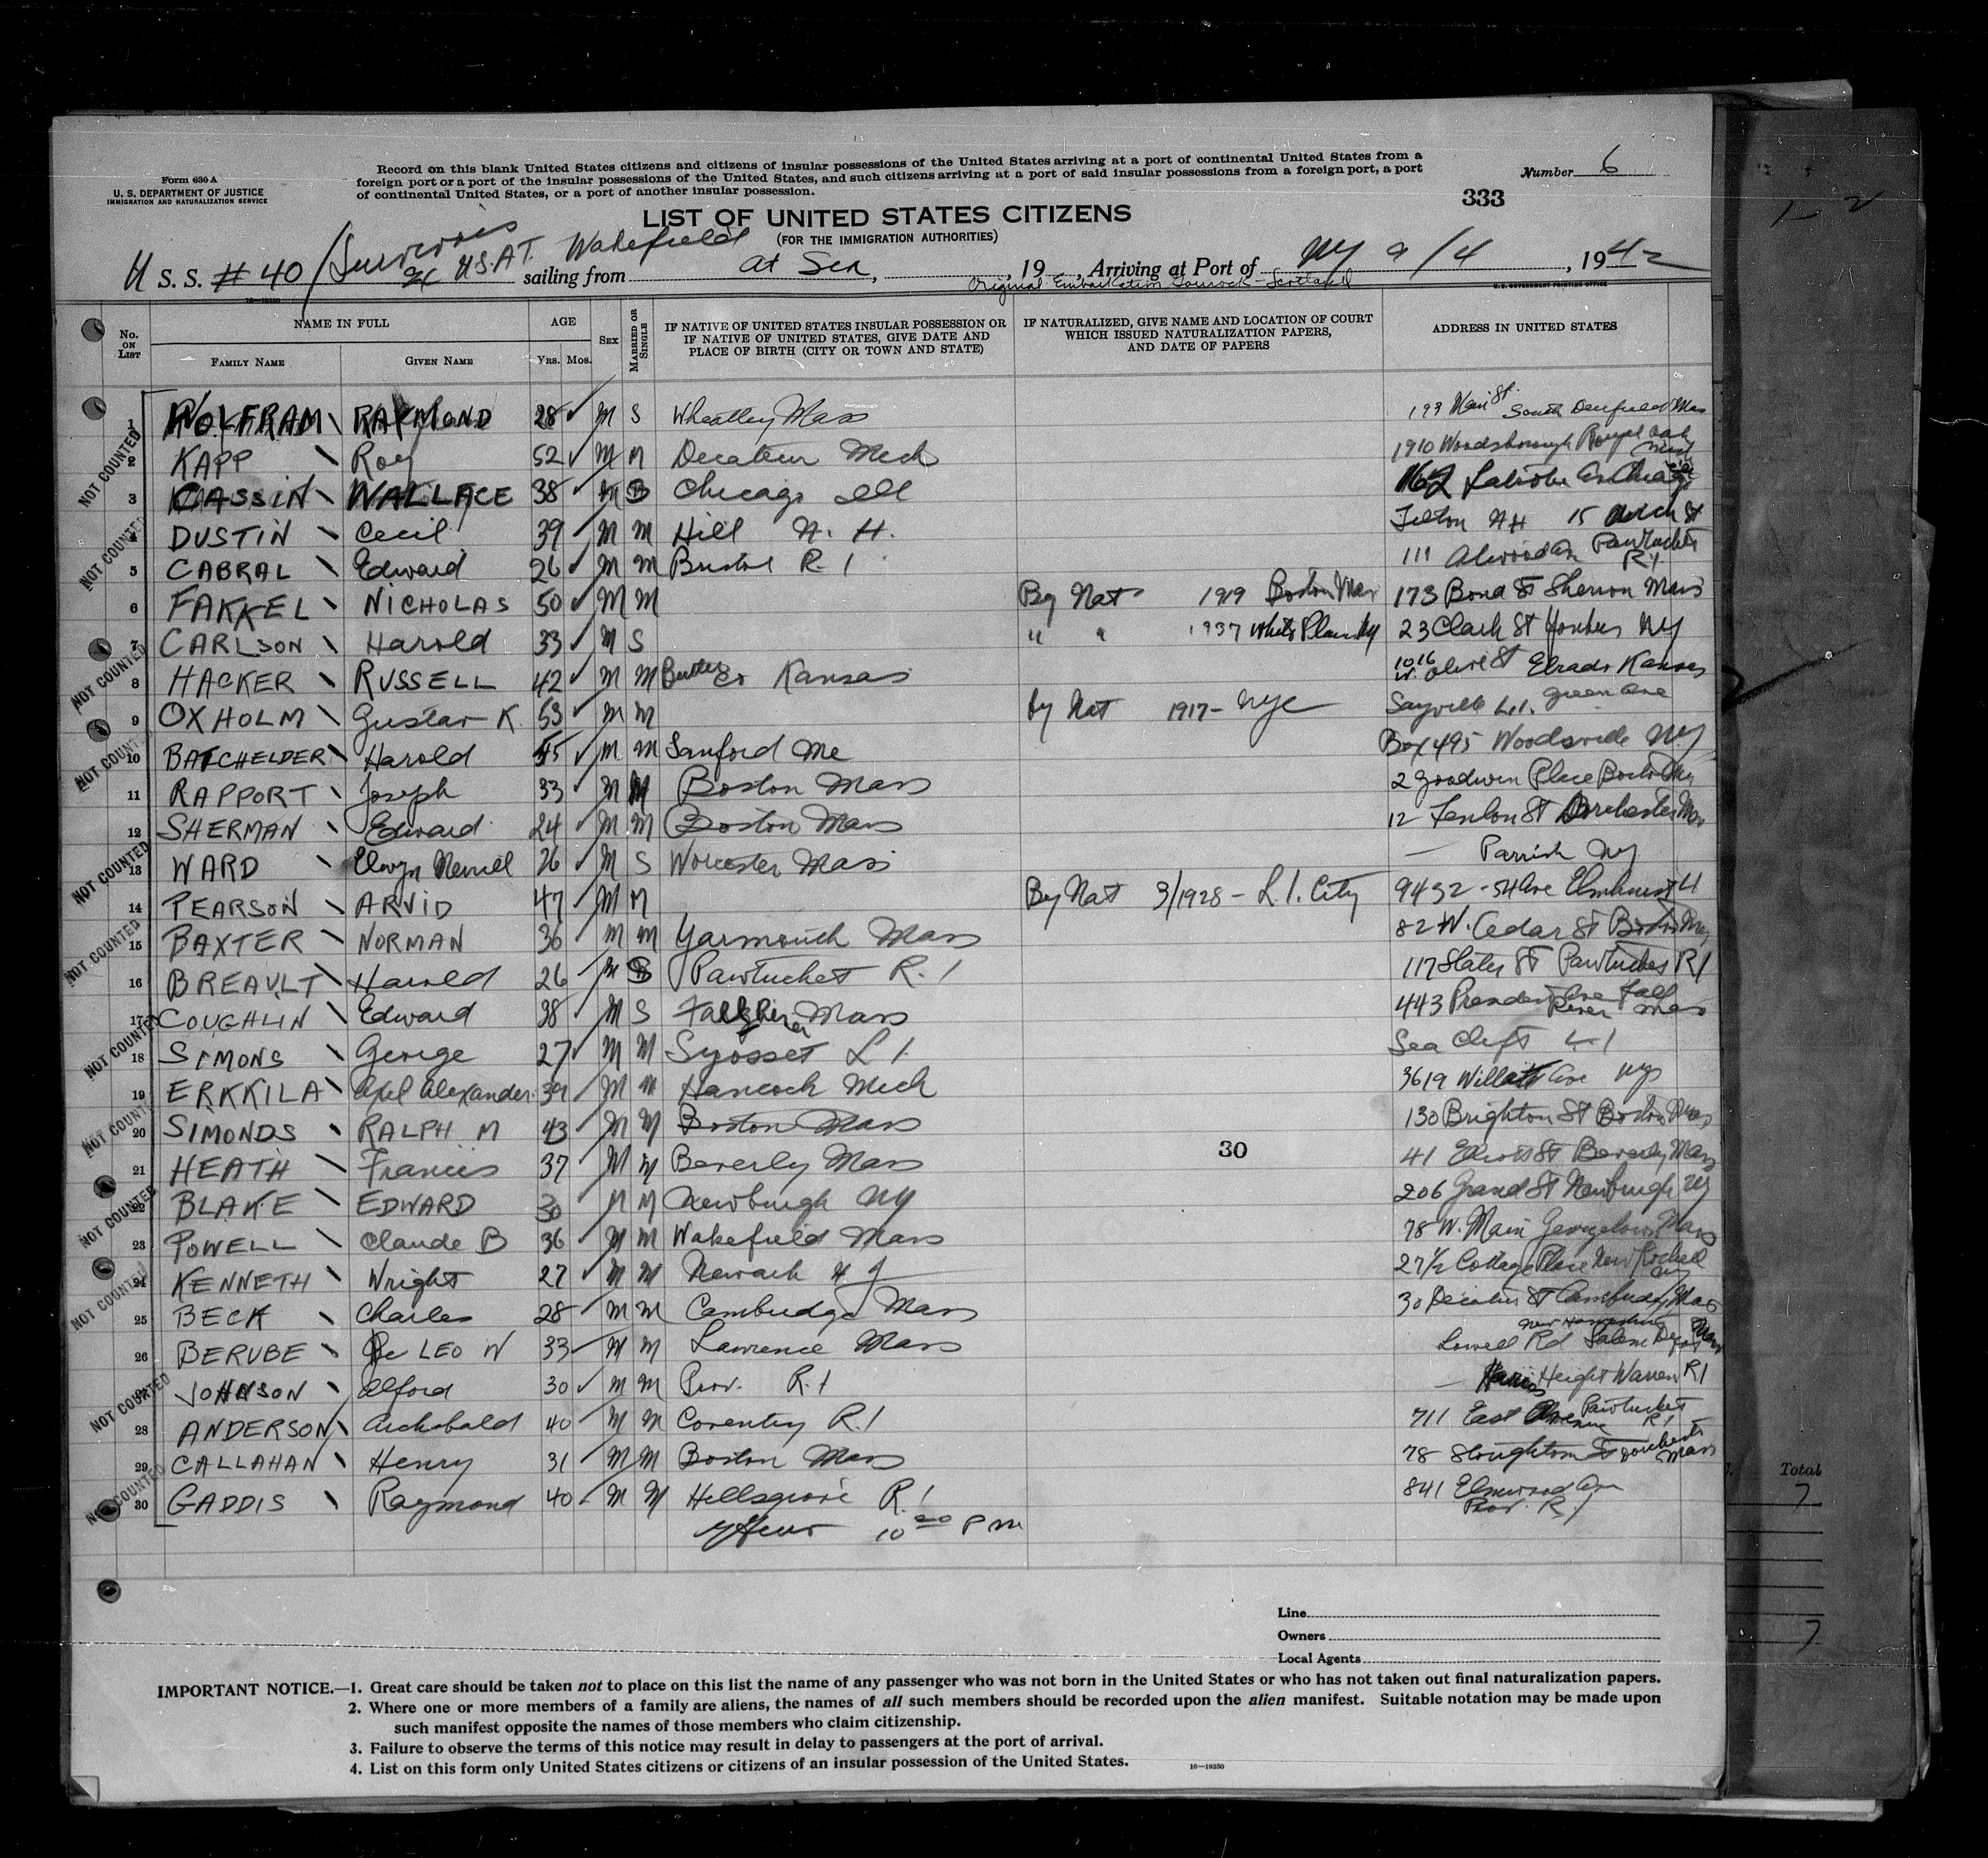 Form 630 A
U. S. DEPARTMENT OF JUSTICE
IMMIGRATION AND NATURALIZATION SERVICE
Record on this blank United States citizens and citizens of insular possessions of the United States arriving at a port of continental United States from a
foreign port or a port of the insular possessions of the United States, and such citizens arriving at a port of said insular possessions from a foreign port, a port
of continental United States, or a port of another insular possession.
Number 6
333
LIST OF UNITED STATES CITIZENS
(FOR THE IMMIGRATION AUTHORITIES)
U S. S. #40 / Survivors U.S.A.T. Wakefield sailing from at Sea, , 19 , Arriving at Port of NY 9/4 , 1942
Original Embarkation Gourock - Scotland
16—19350
U. S. GOVERNMENT PRINTING OFFICE
No. ON LIST
NAME IN FULL
FAMILY NAME
GIVEN NAME
AGE
YRS.
MOS.
SEX
MARRIED OR SINGLE
IF NATIVE OF UNITED STATES INSULAR POSSESSION OR IF NATIVE OF UNITED STATES, GIVE DATE AND PLACE OF BIRTH (CITY OR TOWN AND STATE)
IF NATURALIZED, GIVE NAME AND LOCATION OF COURT WHICH ISSUED NATURALIZATION PAPERS, AND DATE OF PAPERS
ADDRESS IN UNITED STATES
1 WOLFRAM RAYMOND 28 M S Wheatley Mass 193 Main St. South Deerfield Mas
2 KAPP Roy 52 M M Decateur Mich 1910 Woodsborough Royal Oak Mich
3 CASSIN WALLACE 38 M Chicago Ill 162
4 DUSTIN Cecil 39 M M Hill N. H. Tilton NH 15 St
5 CABRAL Edward 26 M M Bristol R. I 111 Atwood Av Pawtucket R.I
6 FAKKEL NICHOLAS 50 M M By Nat 1919 Boston Mas 173 Bond St Sharon Mass
7 CARLSON Harold 33 M S " " 1937 White Plain NY 23 Clark St Yonkers NY
8 HACKER RUSSELL 42 M M Butler Co Kansas 1016 W. Olive St Eldrado Kansas
9 OXHOLM Gustav K. 53 M M by Nat 1917 - NYC Sayville L.I. Green Ave
10 BATCHELDER Harold 45 M M Sanford Me Box 495 Woodsville NY
11 RAPPORT Joseph 33 M M Boston Mass 2 Goodwin Place Boston
12 SHERMAN Edward 24 M M Boston Mass 12 Fenlon St Dorchester Mas
13 WARD Elwyn Merrill 26 M S Worcester Mass — Parrish NY
14 PEARSON ARVID 47 M M By Nat 3/1928 - L.I. City 9432 - 54 Ave Elmhurst LI
15 BAXTER NORMAN 36 M M Yarmouth Mass 82 W. Cedar St Boston
16 BREAULT Harold 26 M S Pawtucket R. I 117 Slater St Pawtucket RI
17 COUGHLIN Edward 38 M S Fall River Mass 443 President Ave Fall River Mass
18 SIMONS George 27 M M Syosset L I. Sea Cliff L I
19 ERKKILA Axel Alexander 39 M M Hancock Mich 3619 Willett Ave NY
20 SIMONDS RALPH M 43 M M Boston Mass 130 Brighton St Boston Mass
21 HEATH Francis 37 M M Beverly Mass 41 Elliott St Beverly Mass
22 BLAKE EDWARD 30 M M Newburgh NY 206 Grand St Newburgh NY
23 POWELL Claude B 36 M M Wakefield Mass 78 W. Main Georgetown Mass
24 KENNETH Wright 27 M M Newark N J 27½ Cottage Place New Rochell NY
25 BECK Charles 28 M M Cambridge Mass 30 Decatur St Cambridge Mas
26 BERUBE LEO W 33 M M Lawrence Mass Lowell Rd Salem Depot New Hampshire
27 JOHNSON Alford 30 M M Prov. R. I — Height Warren RI
28 ANDERSON Archibald 40 M M Coventry R. I 711 East Avenue Pawtucket RI
29 CALLAHAN Henry 31 M M Boston Mass 78 Stoughton St Dorchester Mass
30 GADDIS Raymond 40 M M Hillsgrove R. I 841 Elmwood Ave Prov. R. I
10 20 P m
30
NOT COUNTED
NOT COUNTED
NOT COUNTED
NOT COUNTED
NOT COUNTED
NOT COUNTED
NOT COUNTED
NOT COUNTED
NOT COUNTED
NOT COUNTED
NOT COUNTED
NOT COUNTED
Total
7
7
Line
Owners
Local Agents
IMPORTANT NOTICE.—1. Great care should be taken not to place on this list the name of any passenger who was not born in the United States or who has not taken out final naturalization papers.
2. Where one or more members of a family are aliens, the names of all such members should be recorded upon the alien manifest. Suitable notation may be made upon
such manifest opposite the names of those members who claim citizenship.
3. Failure to observe the terms of this notice may result in delay to passengers at the port of arrival.
4. List on this form only United States citizens or citizens of an insular possession of the United States.
16—19350